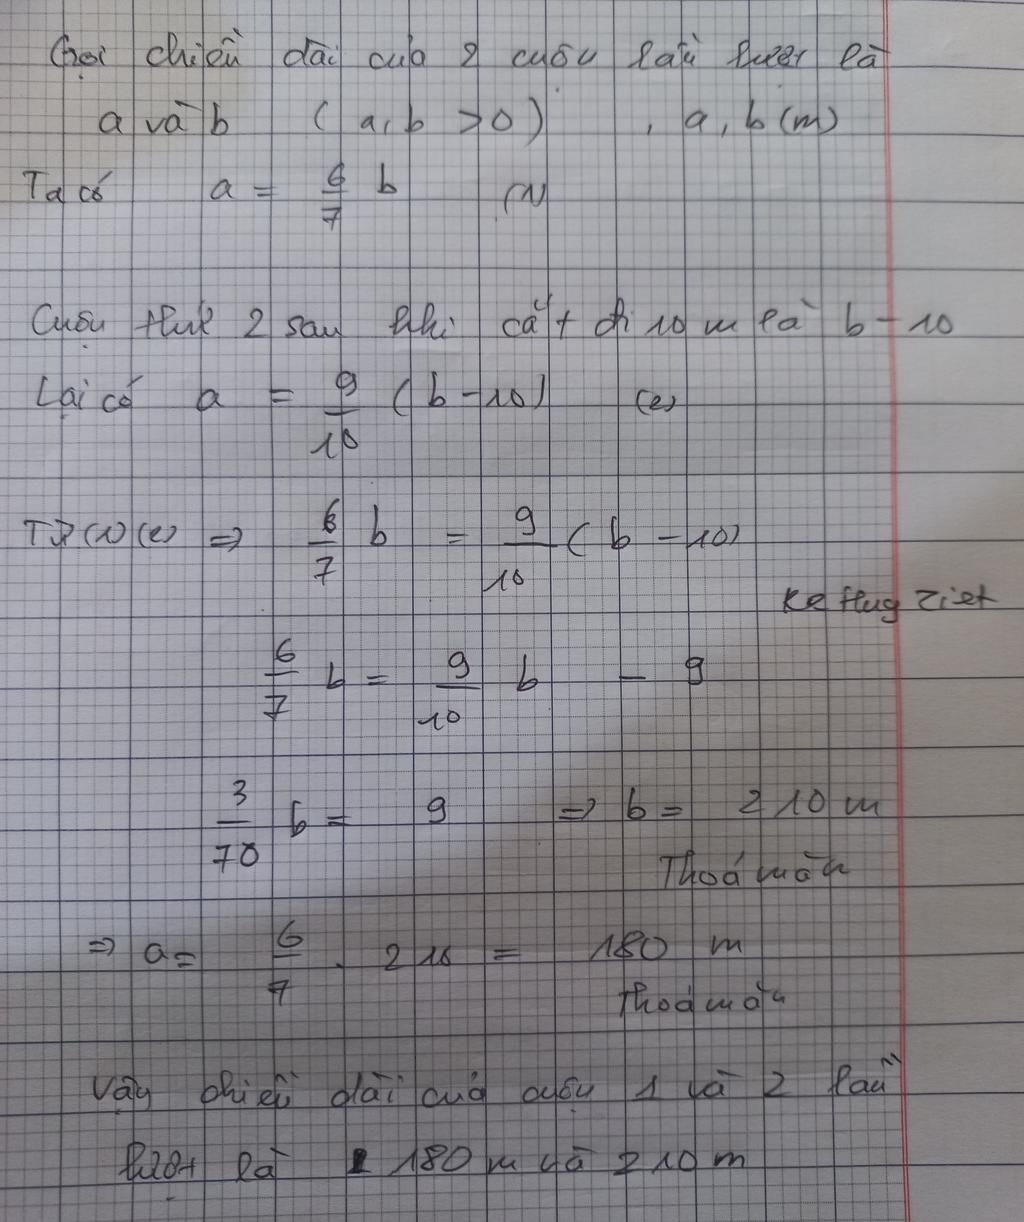 Gọi chiều dài của 2 cuộn lần lượt là
a và b ( a, b > 0 ) , a, b (m)
Ta có a = 6/7 b (1)
Cuộn thứ 2 sau khi cắt đi 10 m là b - 10
Lại có a = 9/10 ( b - 10 ) (2)
Từ (1) (2) => 6/7 b = 9/10 ( b - 10 )
6/7 b = 9/10 b - 9
3/70 b = 9 => b = 210 m
Thoả mãn
=> a = 6/7 . 210 = 180 m
Thoả mãn
Vậy chiều dài của cuộn 1 và 2 lần
lượt là 180 m và 210 m